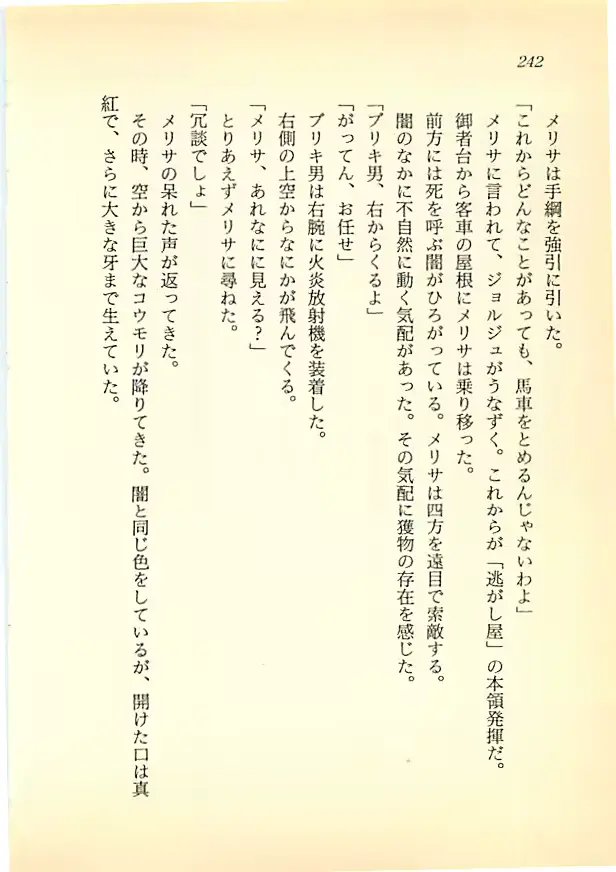 242
メリサは手綱を強引に引いた。
「これからどんなことがあっても、馬車をとめるんじゃないわよ」
メリサに言われて、ジョルジュがうなずく。これからが「逃がし屋」の本領発揮だ。
御者台から客車の屋根にメリサは乗り移った。
前方には死を呼ぶ闇がひろがっている。メリサは四方を遠目で索敵する。
闇のなかに不自然に動く気配があった。その気配に獲物の存在を感じた。
「ブリキ男、右からくるよ」
「がってん、お任せ」
ブリキ男は右腕に火炎放射機を装着した。
右側の上空からなにかが飛んでくる。
「メリサ、あれなにに見える？」
とりあえずメリサに尋ねた。
「冗談でしょ」
メリサの呆れた声が返ってきた。
その時、空から巨大なコウモリが降りてきた。闇と同じ色をしているが、開けた口は真
紅で、さらに大きな牙まで生えていた。